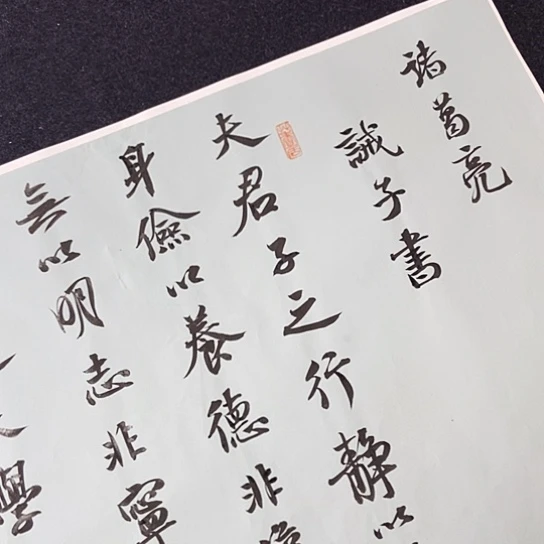 諸葛亮
誡子書
夫君子之行靜以
身儉以養德非
無以明志非寧
學